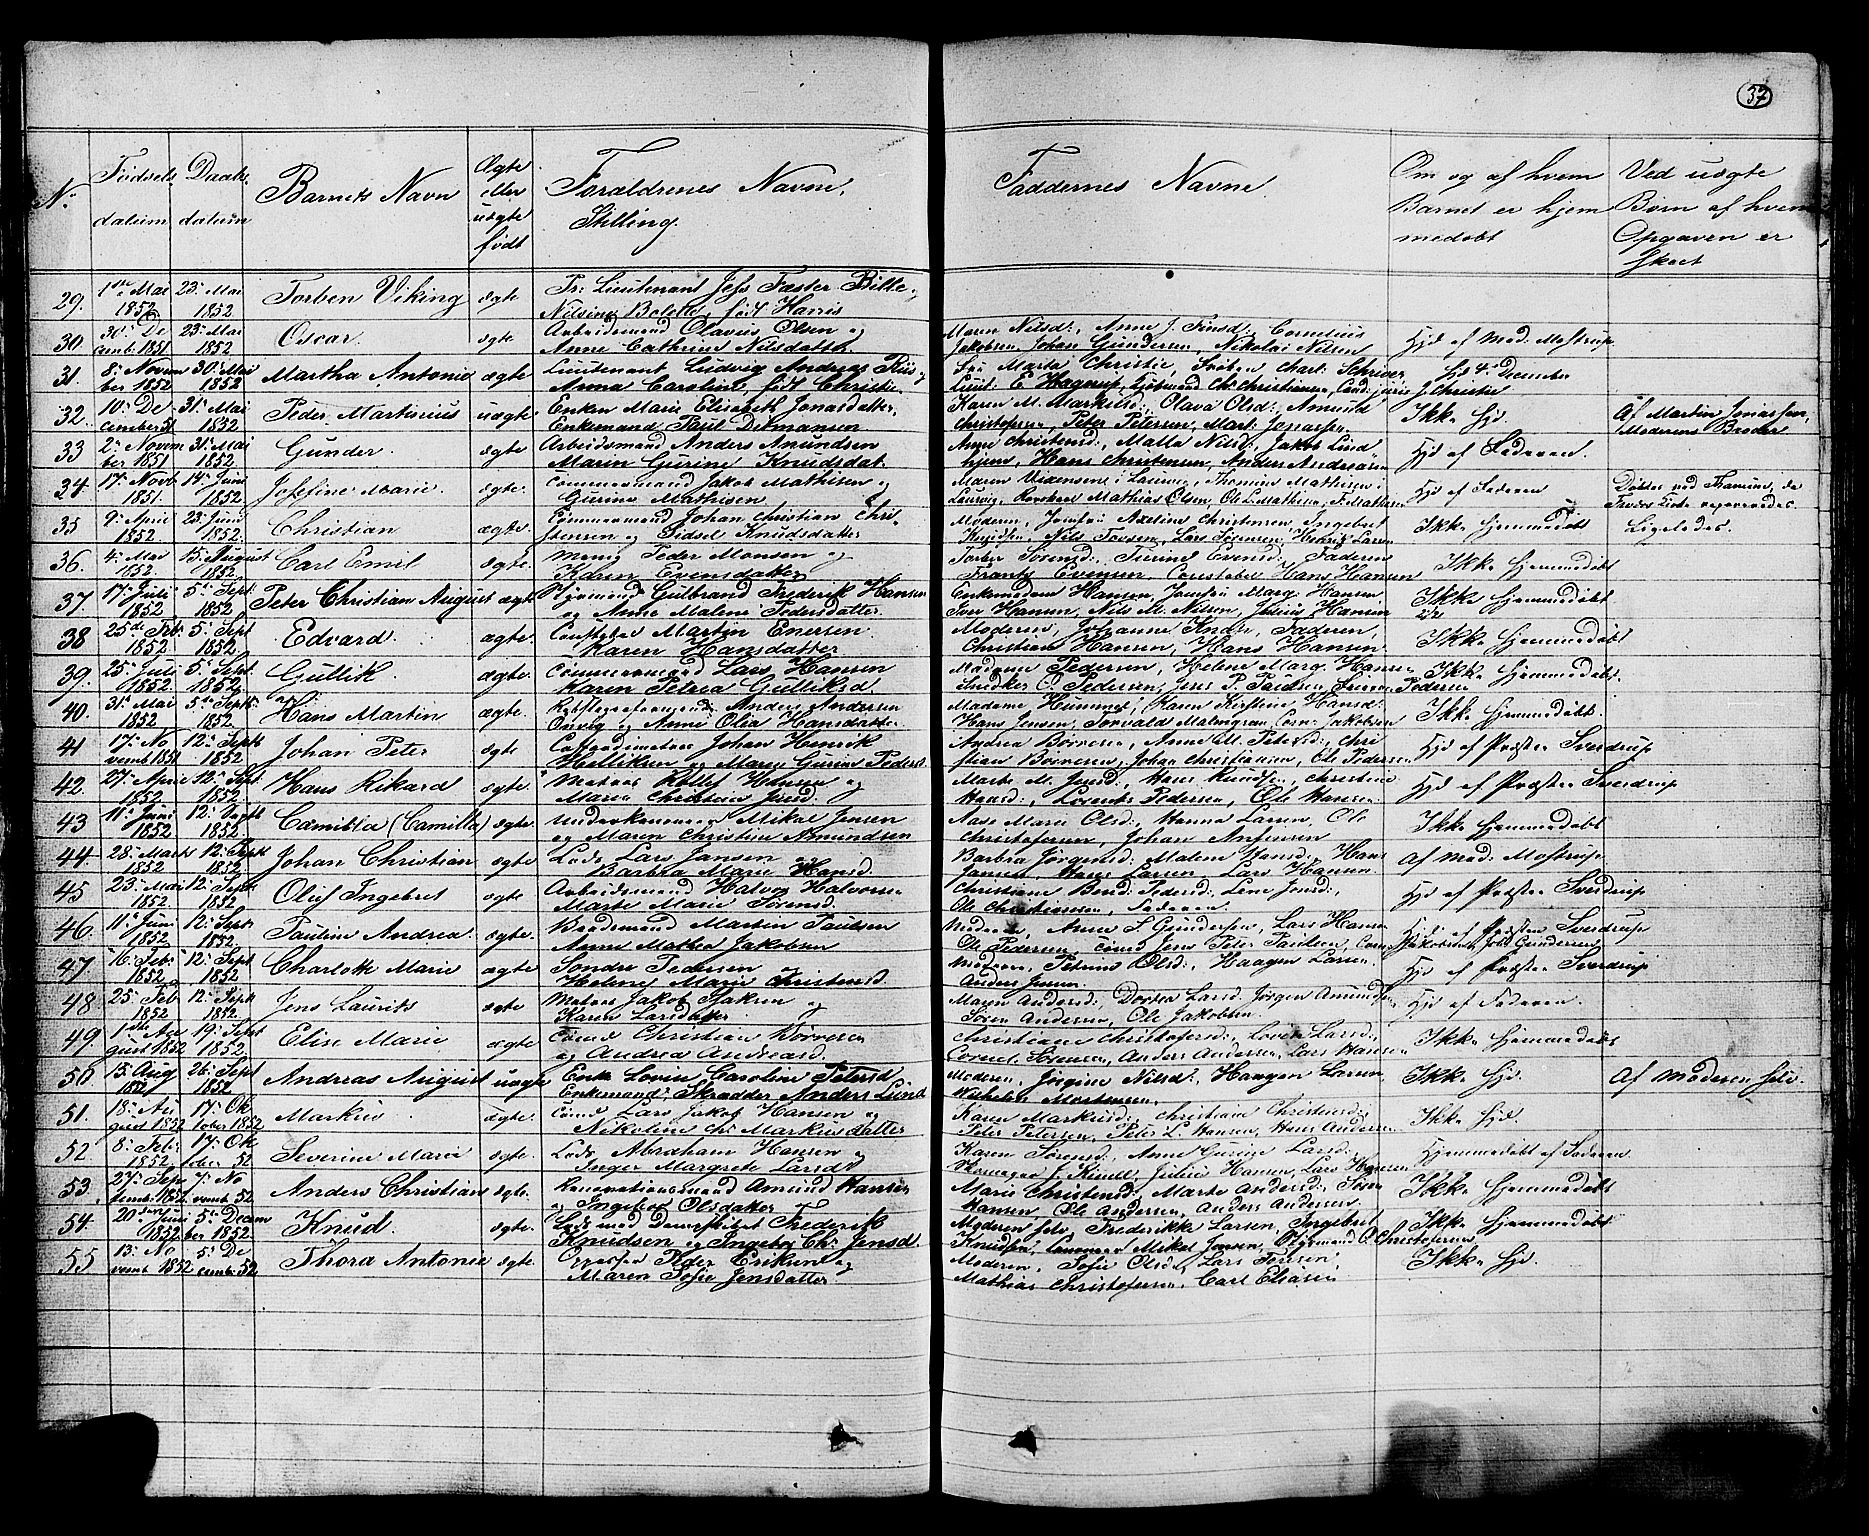 37
N. Fødsels datum Daabs datum Barnets Navn Ægte eller uægte født Forældrenes Navne, Stilling. Faddernes Navne Om og af hvem Barnet er hjemmedøbt Ved uægte Børn af hvem Opgaven er skeet
29. 1ste Mai 23. Mai Torben Viking ægte Pr. Lieutenant Jess Fæster Bille
1852 1852 Nilsine Bolette, født Harris
30. 30. De 23. Mai Oscar. ægte Arbeidsmand Olavus Olsen og Maren Nilsd., Anne J. Finsd., Cornelius
cemb. 1851 1852 Anne Cathrine Nilsdatter. Jakobsen, Johan Gundersen, Nikolai Nilsen Hjd af Mad. Moftrup
31. 8. Novem 30. Mai Martha Antonie ægte Lieutenant Ludvig Andreas Riis Martha Christie, Frøken Charl. Schriver Hjd 4. December
ber 1852 1852 Anna Caroline født Christie. Lieut. E. Hagerup, Chr. Christiansen, J. Christie
32. 10. De 31. Mai Peder Martinius uægte Enken Marie Elisabeth Jonasdatter, Karen M. Markusd., Olava Olsd., Amund Ikke Hjd. Af Martin Jonassen,
cember 51 1852 Enkemand Paul Ditmansen Christofersen, Peter Petersen, Mart. Jonassen Moderens Broder
33 2. Novem 31. Mai Gunder. ægte Arbeidsmand Anders Amundsen Anne Christensd., Matla Nilsd., Jakob Lind Hjd af Faderen.
ber 1851 1852. Maren Gurine Knudsdat. hjem, Hans Christensen, Anders Andreasen
34. 17. Novb 14. Juni Josefine Marie. ægte. Commermand Jakob Mathisen og Hjd af Faderen
1851. 1852. Gurine Mathisen Larvig, Mathias Olsen, Ole L. Mathisen, F. Mathisen
35 9. April 23. Juni Christian ægte. Commermand Johan Christian Chri Moderen, Jomfru Axeline Christensen, Ingebret Ikke Hjemmedøbt Ligeledes.
1852 1852. stensen og Sidsel Knudsdatter Nils Tovsen, Lars Sørensen, Henrik Larsen
36. 4. Mai 15. August Carl Emil ægte. Menig Peder Monsen og Torber Sørensd., Evensd., Faderen Ikke Hjemmedøbt
1852 1852. Karen Evensdatter Frantz Evensen, Constabel Hans Hansen
37. 17. Juli 5. Sept. Peter Christian August ægte Gulbrand Frederik Hansen Enkemadam Hansen, Jomfru Marg. Hansen Ikke Hjemmedøbt.
1852 1852 og Anne Malene Pedersdatter. Iver Hansen, Nils M. Nilsen, Julius Hansen
38 25de Feb. 5. Sept Edvard. ægte. Constabel Martin Enersen. Moderen, Johanne Faderen, Ikke Hjemmedøbt
1852 1852. Karen Hansdatter Christian Hansen, Hans Hansen
39. 25. Juli 5. Sept. Gullik. ægte. Commermand Lars Hansen Madame Pedersen, Helene Marg. Hansen Ikke Hjemmedøbt
1852. 1852 Karen Petrea Gulliksd. Snedker O. Pedersen, Jens P. Paulsen, Pedersen
40. 31. Mai 5te Sept. Hans Martin ægte. Anders Andersen Madame Hammel, Karen Kirstine Hansd. Ikke Hjemmedøbt.
1852 1852. Onvig og Anne Olea Hansdatter Hans Jensen, Torvald Malmgren, Corn. Jakobsen
41 17. No 12. Sept Johan Peter ægte Johan Henrik Andrea Børresen, Anne M. Petersd., Chri Hjd af Præsten Sverdrup
vemb 1851 1852 Hellesen og Maren Gurine Pedersd. stian Børresen, Johan Christiansen, Ole Pedersen
42. 27. April 12. Sept. Hans Rikard ægte. Matros Rolf Hansen og Marte M. Jensd., Hans Knudsen, Christine Hjd af Præsten Sverdrup
1852 1852. Maren Christine Jensd. Hansd., Lorents Pedersen, Ole Hansen
43 11. Juni 12. Septb Camilla (Camilla) ægte. Underkanoner Mikal Jensen Marie Olsd., Hanna Larsen, Ole Ikke Hjemmedøbt
1852 1852. og Maren Christine Amundsen Christofersen, Johan Antonsen
44. 28. Marts 12. Sept Johan Christian ægte. Lods Lars Jansen Barbra Jørgensd., Malene Hansd., Hans Af Mad. Moftrup
1852 1852. Barbra Marie Hansd. Jansen, Hans Larsen, Lars Hansen
45 23. Mai 12. Sept Oluf Ingebret ægte Arbeidsmand Halvor Halvorsen Christiane Bernt Pedersd., Lene Jensd., Hjd af Præsten Sverdrup
1852. 1852 Marte Marie Sørensd. Ole Christiansen, Faderen.
46. 11. Juni 12. Sept. Pauline Andrea. ægte. Baadsmand Martin Paulsen Anne S. Gundersen, Lars Hansen Hjd af Præsten Sverdrup
1852 1852. Anne Mathea Jakobsen Ole Pedersen, Jens Peter Paulsen, Jakobsen, Joh. Gundersen
47 16. Feb. 12. Sept Charlotte Marie ægte Søndre Pedersen Moderen, Petrine Olsd., Haagen Larsen Hjd af Præsten Sverdrup
1852 1852 Helene Marie Christensd. Anders Jensen.
48 25. Feb 12. Sept Jens Laurits ægte Matros Jakob Isaksen og Maren Andersd., Dortea Larsd., Jørgen Amundsen Hjd af Faderen.
1852 1852. Karen Larsdatter Søren Andersen, Ole Jakobsen.
49. 1ste Au 19. Sept Elise Marie ægte. Christian Børresen Christiane Christofersd., Lovise Larsd., Ikke Hjemmedøbt
gust 1852 1852 og Andrea Andreasd. Cornel. Sørensen, Anders Andersen, Lars Hansen
50 15. Aug 26. Sept Andreas August uægte Enke Lovise Caroline Petersd Moderen, Jørgine Nilsd., Haagen Larsen Ikke Hjd. Af Moderen selv.
1852 1852. Enkemand Skrædder Anders Lund Wilhelm Mortensen.
51. 18. Au 17. Ok Markus ægte. Lars Jakob Hansen og Karen Markusd., Christiane Christensd., Ikke Hjd.
gust 1852 tober 1852 Nikoline Chr. Markusdatter Peter Petersen, Peter L. Hansen, Hans Andersen
52. 8. Febr 17. Ok Severine Marie ægte. Lods Abraham Hansen og Karen Sørensd., Anne Gurine Larsd., Hjemmedøbt af Faderen
1852. tober 52 Inger Margrete Larsd. Julius Hansen, Lars Hansen
53. 27. Sep 7. No Anders Christian ægte. Amund Hansen Marie Christensd., Marte Andersd., Søren Ikke Hjemmedøbt
temb. 1852. vemb. 52 og Ingebor Olsdatter Hansen, Ole Andersen, Anders Andersen
54. 20den Juni 5te Decem Knud. ægte. Frederik Moderen selv, Frederikke Larsen, Ingebret Ikke Hjemmedøbt
1852 ber 1852. Knudsen og Ingebor Chr. Jensd. Knudsen, Mikal Jensen, O. Christofersen
55. 13. No 5. De Thora Antonie ægte. Peder Eriksen og Moderen, Sofie Olsd., Lars Iversen, Ikke Hjd.
vemb 1852 cemb. 52 Maren Sofie Jensdatter Mathias Christofersen, Carl Eliasen